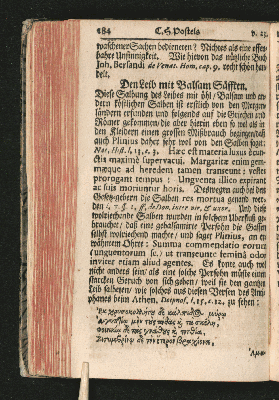 184 C. H. Postels v. 23.
waschener Sachen bedieneten? Nichts als eine offen-
bahre Unsinnigkeit. Wie hievon das nützliche Buch
Joh. Bersandi de Venat. Hom. cap. 9. recht schön han-
delt.
Den Leib mit Balsam Säfften.
Diese Salbung des Leibes mit öhl/ Balsam und an-
dern köstlichen Salben ist erstlich von den Morgen-
ländern erfunden und folgends auf die Griechen und
Römer gekommen die aber hierin eben so viel als in
den Kleidern einen grossen Misbrauch begingen/daß
auch Plinius daher sehr wol von den Salben saget:
Nat. Hist. l. 13. c. 3. Hæc est materia luxus e cun-
ctis maximè supervacui. Margaritæ enim gem-
mæque ad heredem tamen transeunt: vestes
prorogant tempus: Unguenta illico expirant
ac suis moriuntur horis. Deswegen auch bey den
Gesetzgebern die Salben res mortua genant wer-
den Und diese
wolriechende Salben wurden in solchem Uberfluß ge-
brauchet/ daß eine gebalsamirte Person die Gassen
selbst wolriechend machte/ und saget Plinius, an er-
wähntem Ohrte: Summa commendatio eorum
(unguentorum sc.) ut transeunte fœminâ odor
invitet etiam aliud agentes. Es konte auch wol
nicht anders sein/ als eine solche Person müste einen
starcken Geruch von sich geben/ weil sie den gantzen
Leib salbeten/ wie solches aus diesen Versen des Anti-
phanes beim Athen. Deipnos. l. 15. c. 12. zu sehen: